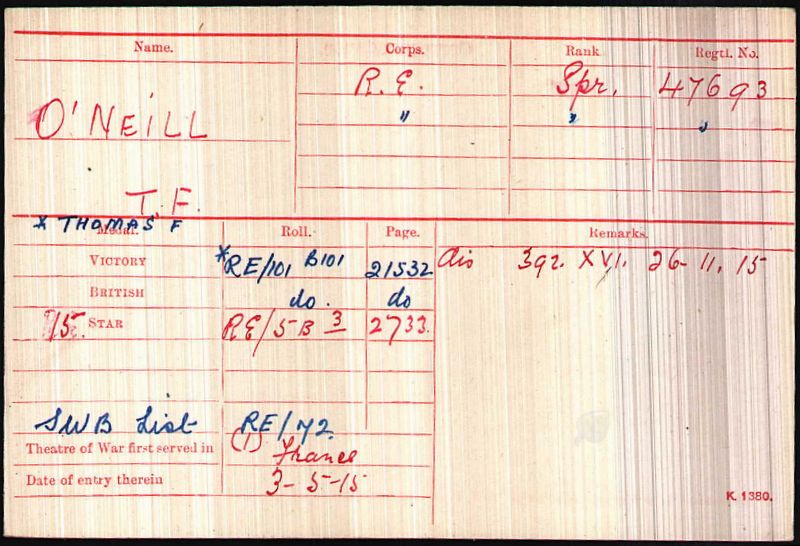 Name. Corps. Rank Regtl. No.
O'NEILL R.E. Spr. 47693
" " "
T.F.
* THOMAS F
Medal. Roll. Page. Remarks.
VICTORY *RE/101 B101 21532 dis 392. XVI. 26-11.15
BRITISH do. do
15 STAR RE/5B 3 2733.
SWB List RE/72.
Theatre of War first served in (1) France
Date of entry therein 3-5-15
K. 1380.